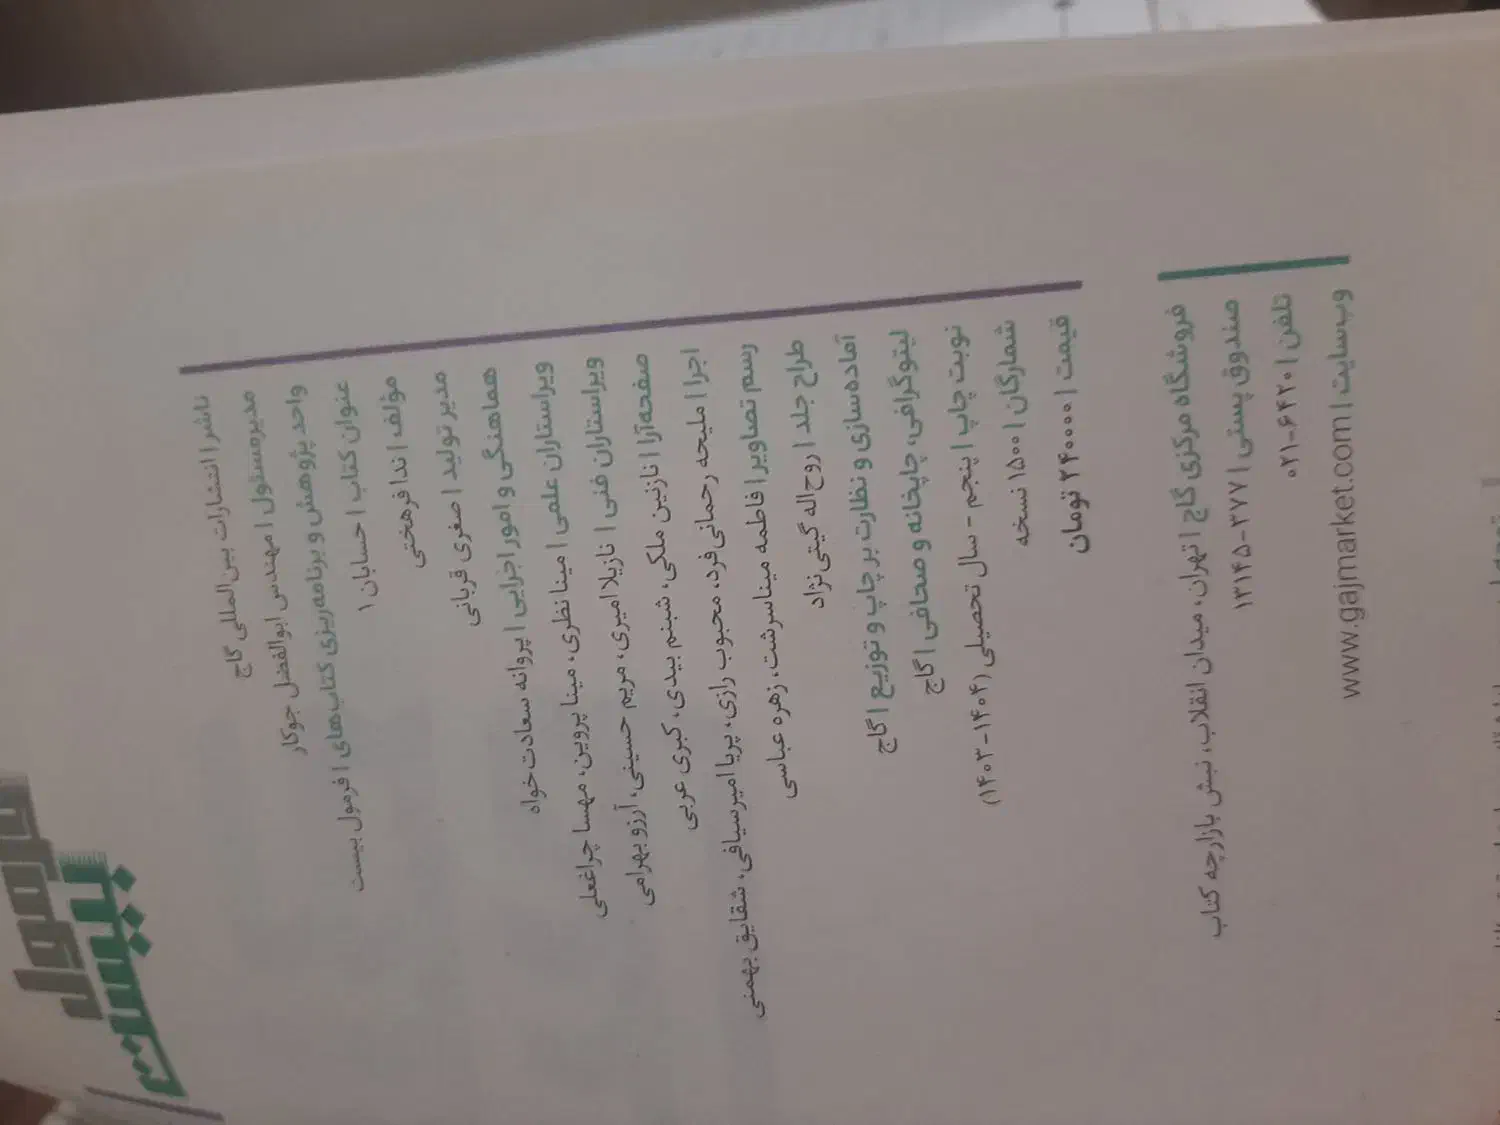 فرمول
بیست
ناشر | انتشارات بین‌المللی گاج
مدیرمسئول | مهندس ابوالفضل جوکار
واحد پژوهش و برنامه‌ریزی کتاب‌های | فرمول بیست
عنوان کتاب | حسابان ۱
مؤلف | ندا فرهختی
مدیر تولید | صغری قربانی
هماهنگی و امور اجرایی | پروانه سعادت‌خواه
ویراستاران علمی | مینا نظری، مینا پروین، مهسا چراغعلی
ویراستاران فنی | نازیلا امیری، مریم حسینی، آرزو بهرامی
صفحه‌آرا | نازنین ملکی، شبنم بیدی، کبری عربی
اجرا | ملیحه رحمانی‌فرد، محبوب رازی، پریا امیرسیافی، شقایق بهمنی
رسم تصاویر | فاطمه میناسرشت، زهره عباسی
طراح جلد | روح‌اله گیتی‌نژاد
آماده‌سازی و نظارت بر چاپ و توزیع | گاج
لیتوگرافی، چاپخانه و صحافی | گاج
نوبت چاپ | پنجم - سال تحصیلی (۱۴۰۴-۱۴۰۳)
شمارگان | ۱۵۰۰ نسخه
قیمت | ۲۴۰۰۰۰ تومان
فروشگاه مرکزی گاج | تهران، میدان انقلاب، نبش بازارچه کتاب
صندوق پستی | ۳۷۷-۱۳۱۴۵
تلفن | ۶۴۲۰-۰۲۱
وب‌سایت | www.gajmarket.com